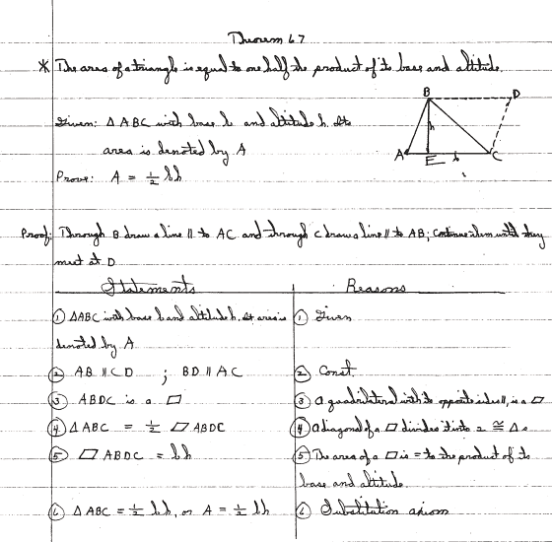 Theorem 67
* The area of a triangle is equal to one half the product of its base and altitude.
B D
Given: Δ ABC with base b and altitude h. Its
h
area is denoted by A
A E b C
Prove: A = ½ bh
Proof: Through B draw a line || to AC and through C draw a line || to AB; continue them until they
meet at D
Statements Reasons
① ΔABC with base b and altitude h. Its area is ① Given
denoted by A
② AB || CD ; BD || AC ② Const.
③ ABDC is a ▱ ③ a quadrilateral with its opposite sides ||, is a ▱
④ Δ ABC = ½ ▱ ABDC ④ a diagonal of a ▱ divides it into 2 ≅ Δs
⑤ ▱ ABDC = bh ⑤ The area of a ▱ is = to the product of its
base and altitude.
⑥ Δ ABC = ½ bh, or A = ½ bh ⑥ Substitution axiom